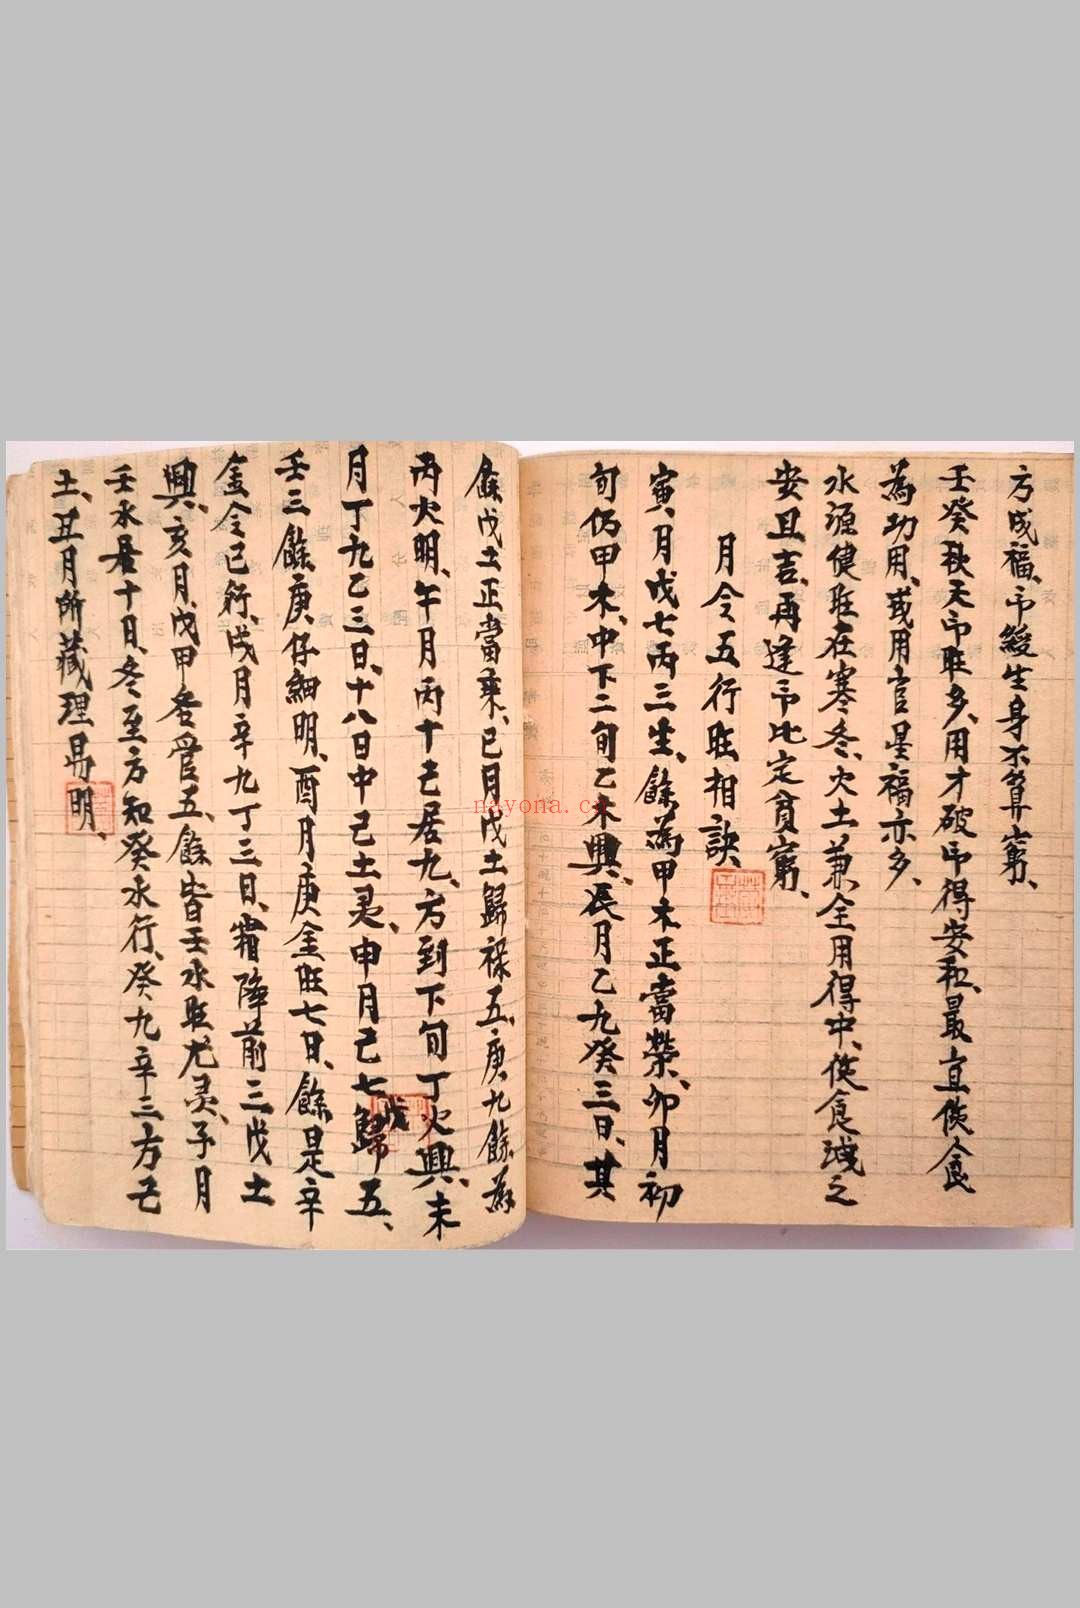 方成福、印綬生身不算窮、
壬癸秋天印旺多、用才破印得安和、最宜傷食
為功用、或用官星福亦多、
水源健旺在寒冬、火土兼全用得中、傷食減之
安且吉、再逢印比定貧窮、
月令五行旺相訣、
寅月戊七丙三生、餘為甲木正當榮、卯月初
旬仍甲木、中下二旬乙木興、辰月乙九癸三日、其
餘戊土正當乘、巳月戊土歸祿五、庚九餘為
丙火明、午月丙十己居九、方到下旬丁火興、未
月丁九乙三日、十八日中己土灵、申月己七歸五、
戊
壬三餘庚仔細明、酉月庚金旺七日、餘是辛
金令已行、戌月辛九丁三日、霜降前三戊土
興、亥月戊甲各管五、餘皆壬水旺尤灵、子月
壬水居十日、冬至方知癸水行、癸九辛三方己
土、丑月所藏理易明、
nayona.c